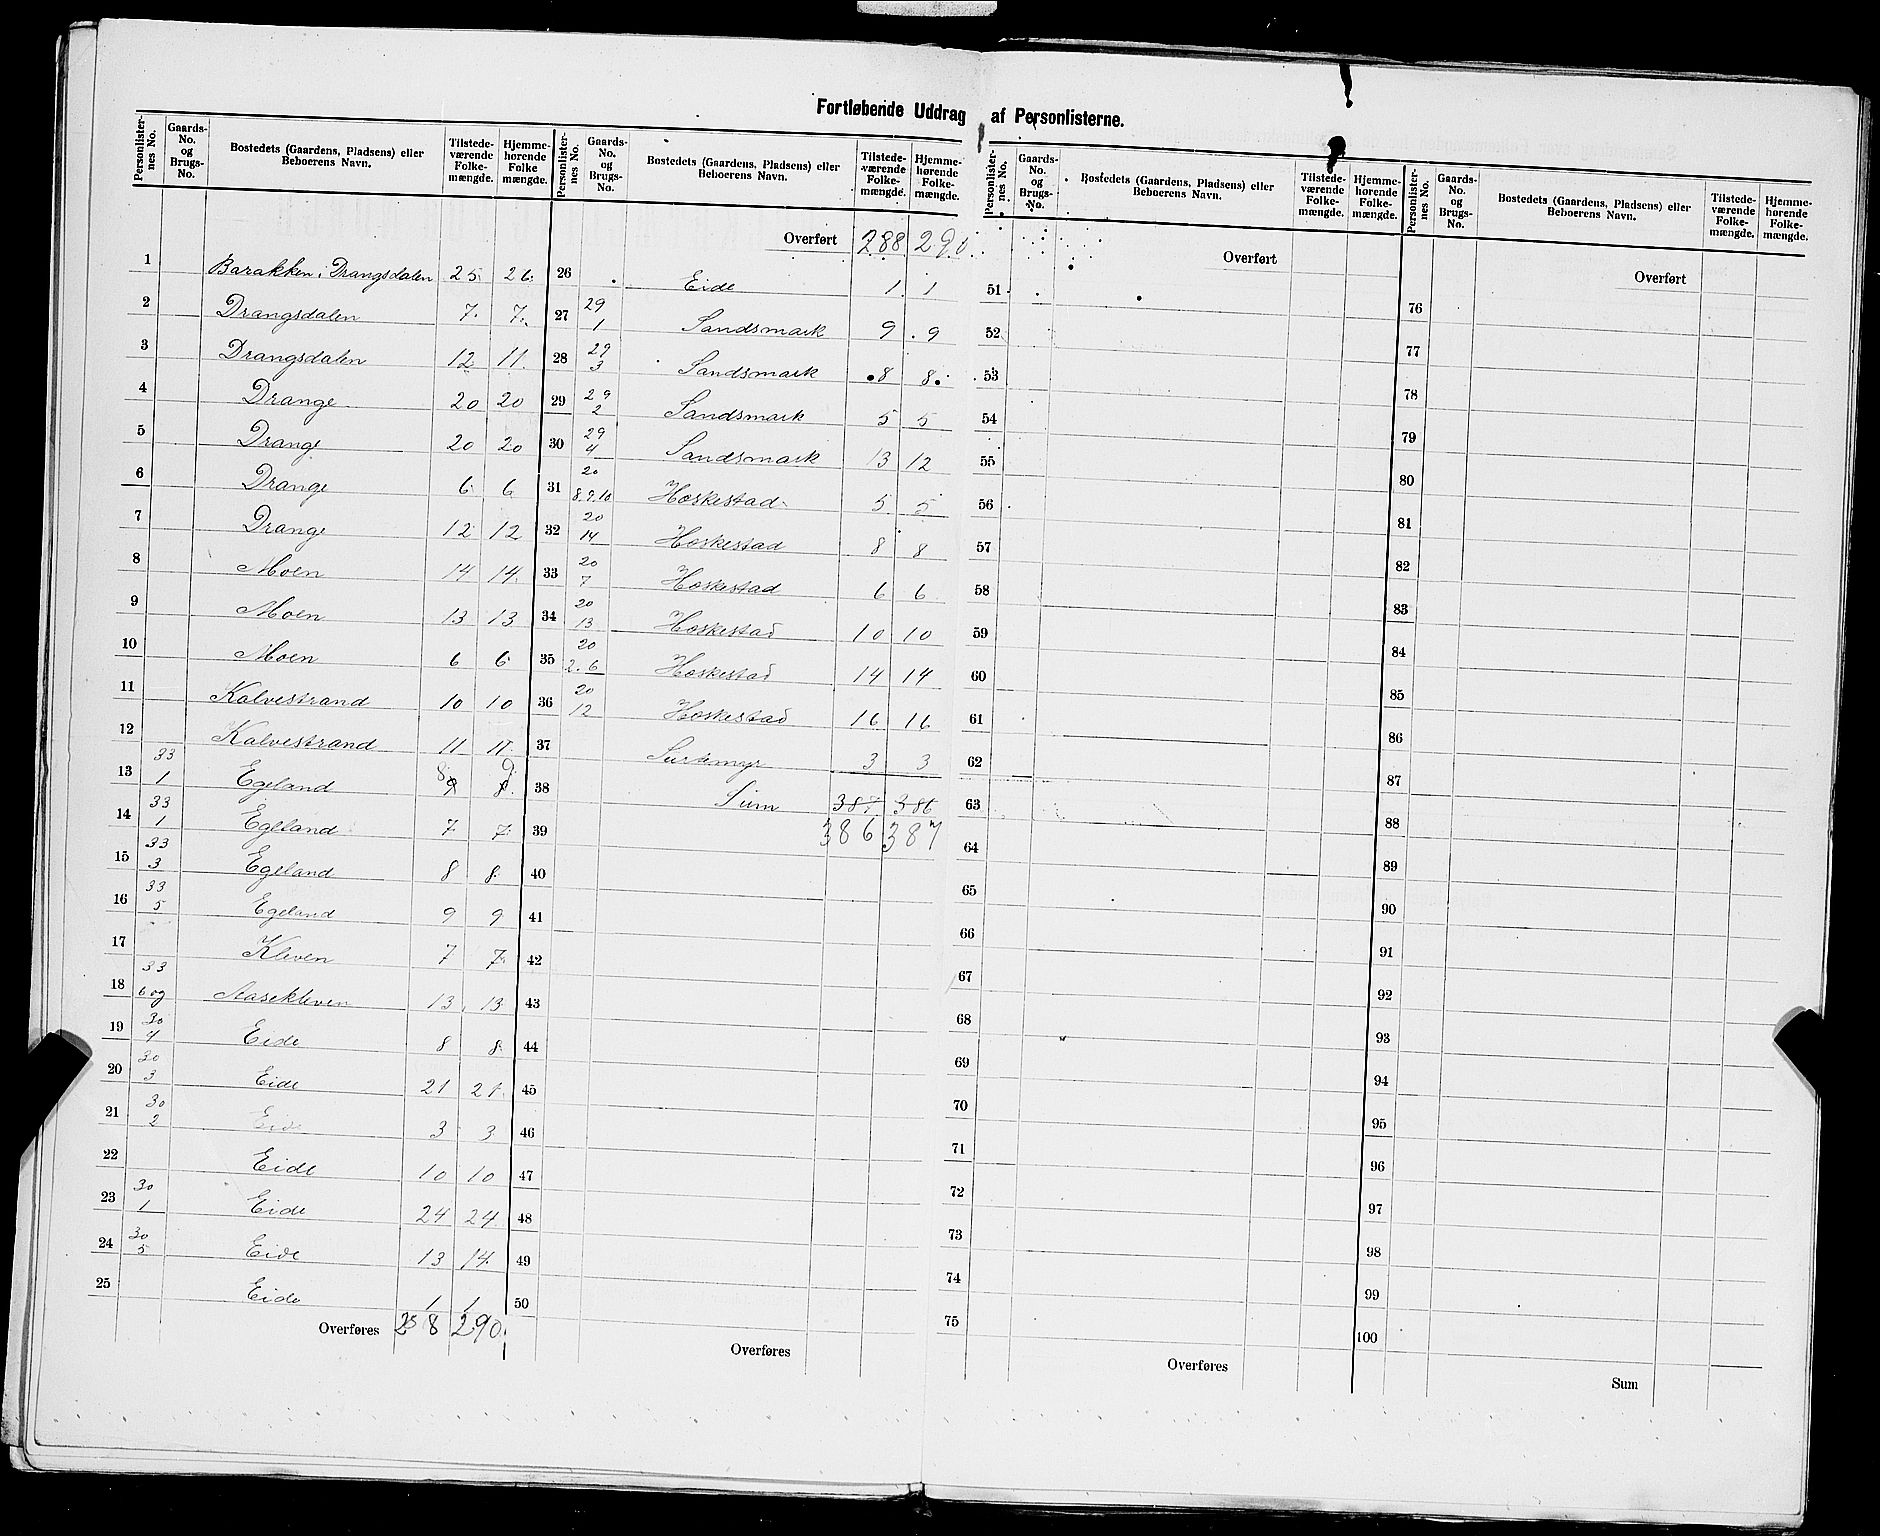 Fortløbende Uddrag af Personlisterne.
Personlister-nes No. | Gaards-No. og Brugs-No. | Bostedets (Gaardens, Pladsens) eller Beboerens Navn. | Tilstede-værende Folke-mængde. | Hjemme-hørende Folke mængde.
1 Barakken i Drangsdalen 25 26
2 Drangsdalen 7 7
3 Drangsdalen 12 11
4 Drange 20 20
5 Drange 20 20
6 Drange 6 6
7 Drange 12 12
8 Moen 14 14
9 Moen 13 13
10 Moen 6 6
11 Kalvestrand 10 10
12 Kalvestrand 11 11
13 33/1 Egeland 8 9
14 33/1 Egeland 7 7
15 33/3 Egeland 8 8
16 33/5 Egeland 9 9
17 Kleven 7 7
18 33/6 og Aasekleven 13 13
19 30/4 Eide 8 8
20 30/3 Eide 21 21
21 30/2 Eide 3 3
22 Eide 10 10
23 30/1 Eide 24 24
24 30/5 Eide 13 14
25 Eide 1 1
Overføres 288 290
Personlister-nes No. | Gaards-No. og Brugs-No. | Bostedets (Gaardens, Pladsens) eller Beboerens Navn. | Tilstede-værende Folke-mængde. | Hjemme-hørende Folke-mængde.
Overført 288 290
26 Eide 1 1
27 29/1 Sandsmark 9 9
28 29/3 Sandsmark 8 8
29 29/2 Sandsmark 5 5
30 29/4 Sandsmark 13 12
31 20/8.9.10 Hoskestad 5 5
32 20/14 Hoskestad 8 8
33 20/7 Hoskestad 6 6
34 20/13 Hoskestad 10 10
35 20/2.6 Hoskestad 14 14
36 20/12 Hoskestad 16 16
37 3 3
38 Sum 387 386
39 386 387
40
41
42
43
44
45
46
47
48
49
50
Overføres
Personlister-nes No. | Gaards-No. og Brugs-No. | Bostedets (Gaardens, Pladsens) eller Beboerens Navn. | Tilstede-værende Folke-mængde. | Hjemme-hørende Folke-mængde.
Overført
51
52
53
54
55
56
57
58
59
60
61
62
63
64
65
66
67
68
69
70
71
72
73
74
75
Overføres
Personlister-nes No. | Gaards-No. og Brugs-No. | Bostedets (Gaardens, Pladsens) eller Beboerens Navn. | Tilstede-værende Folke-mængde. | Hjemme-hørende Folke-mængde.
Overført
76
77
78
79
80
81
82
83
84
85
86
87
88
89
90
91
92
93
94
95
96
97
98
99
100
Sum